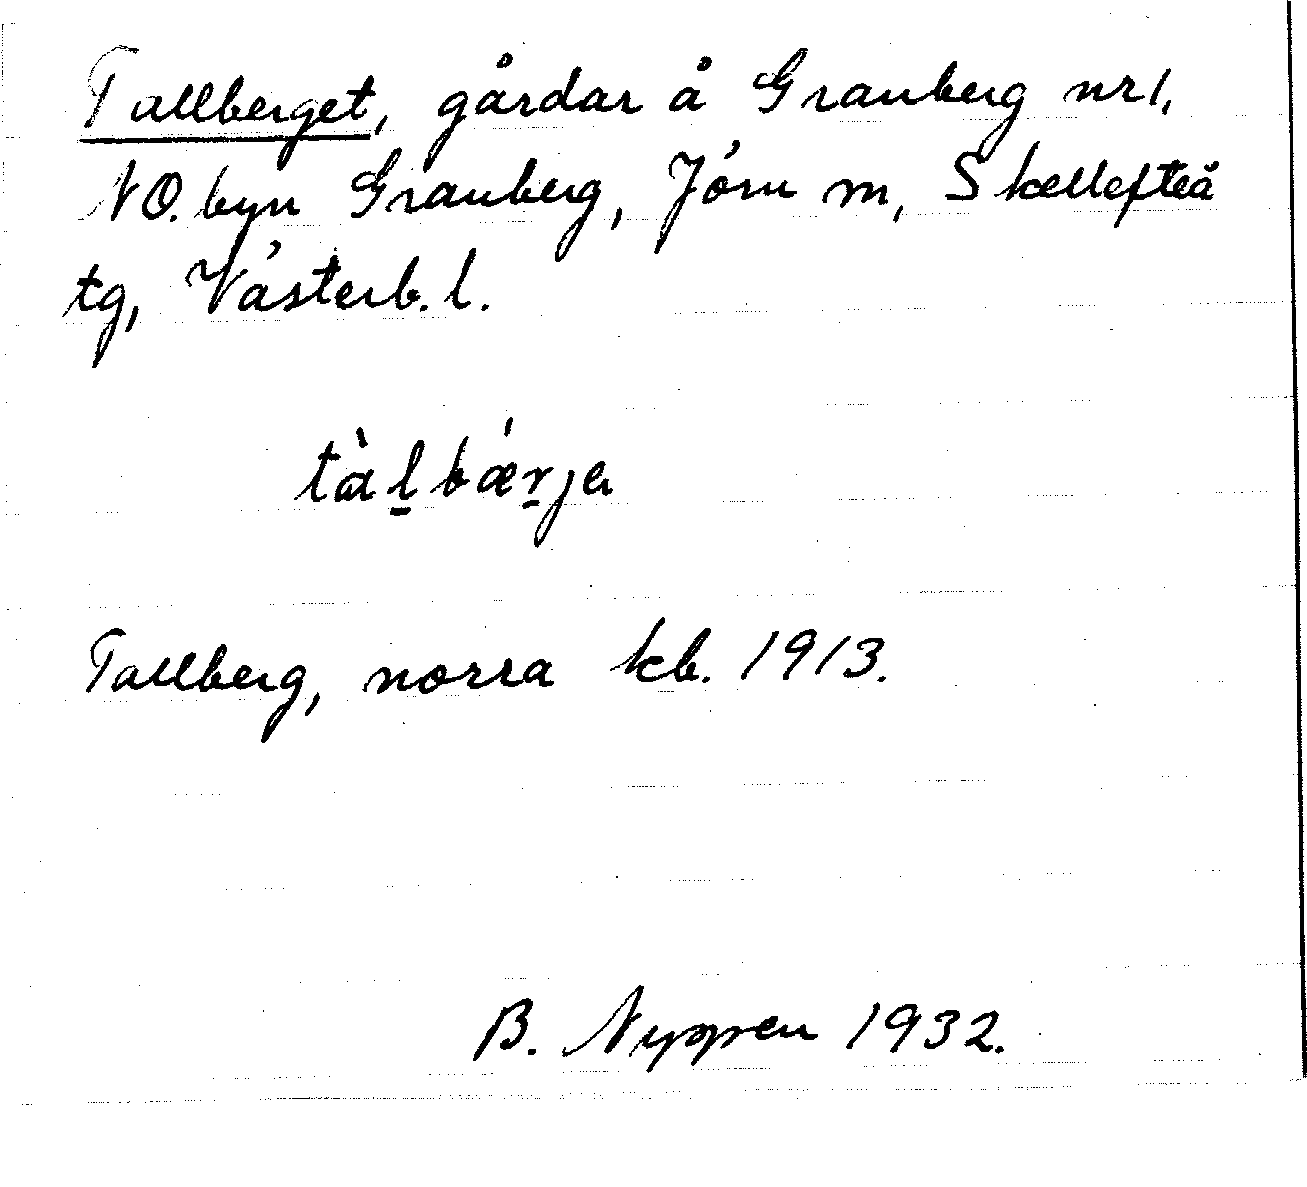 Tallberget, gårdar å Granberg nr 1,
NO. byn Granberg, Jörn sn, Skellefteå
tg, Västerb. l.
tàl̠bær̠ja
Tallberg, norra kb. 1913.
B. 1932.